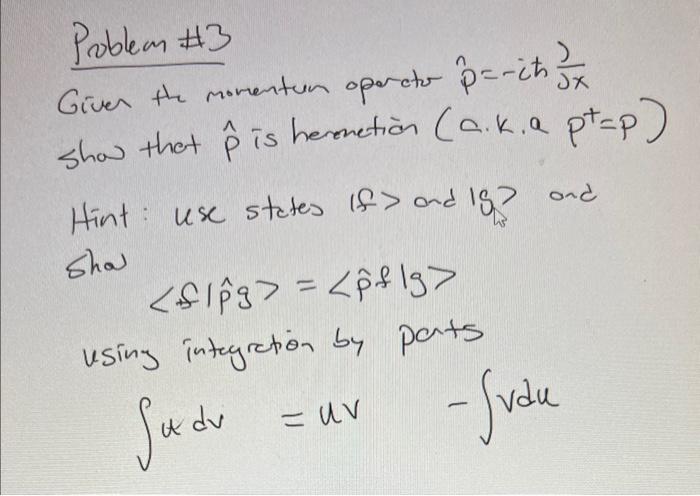 Problem #3
Given the momentum operator p̂ = -iħ ∂/∂x
show that p̂ is heremetion (a.k.a p†=p)
Hint: use states |f> and |g> and
show
<f|p̂g> = <p̂f|g>
using integration by parts
∫u dv = uv - ∫vdu